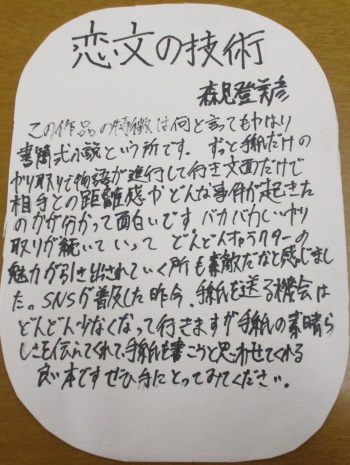 恋文の技術
森見登美彦
この作品の特徴は何と言ってもやはり
書簡式小説という所です。ずっと手紙だけの
やり取りで物語が進行して行き文面だけで
相手との距離感やどんな事件が起きた
のかが分かって面白いです バカバカしいやり
取りが続いていって どんどんキャラクターの
魅力が引き出されていく所も素敵だなと感じまし
た。SNSが普及した昨今、手紙を送る機会は
どんどん少なくなって行きますが手紙の素晴ら
しさを伝えてくれて、手紙を書こうと思わせてくれる
良い本です ぜひ手にとってみてください。